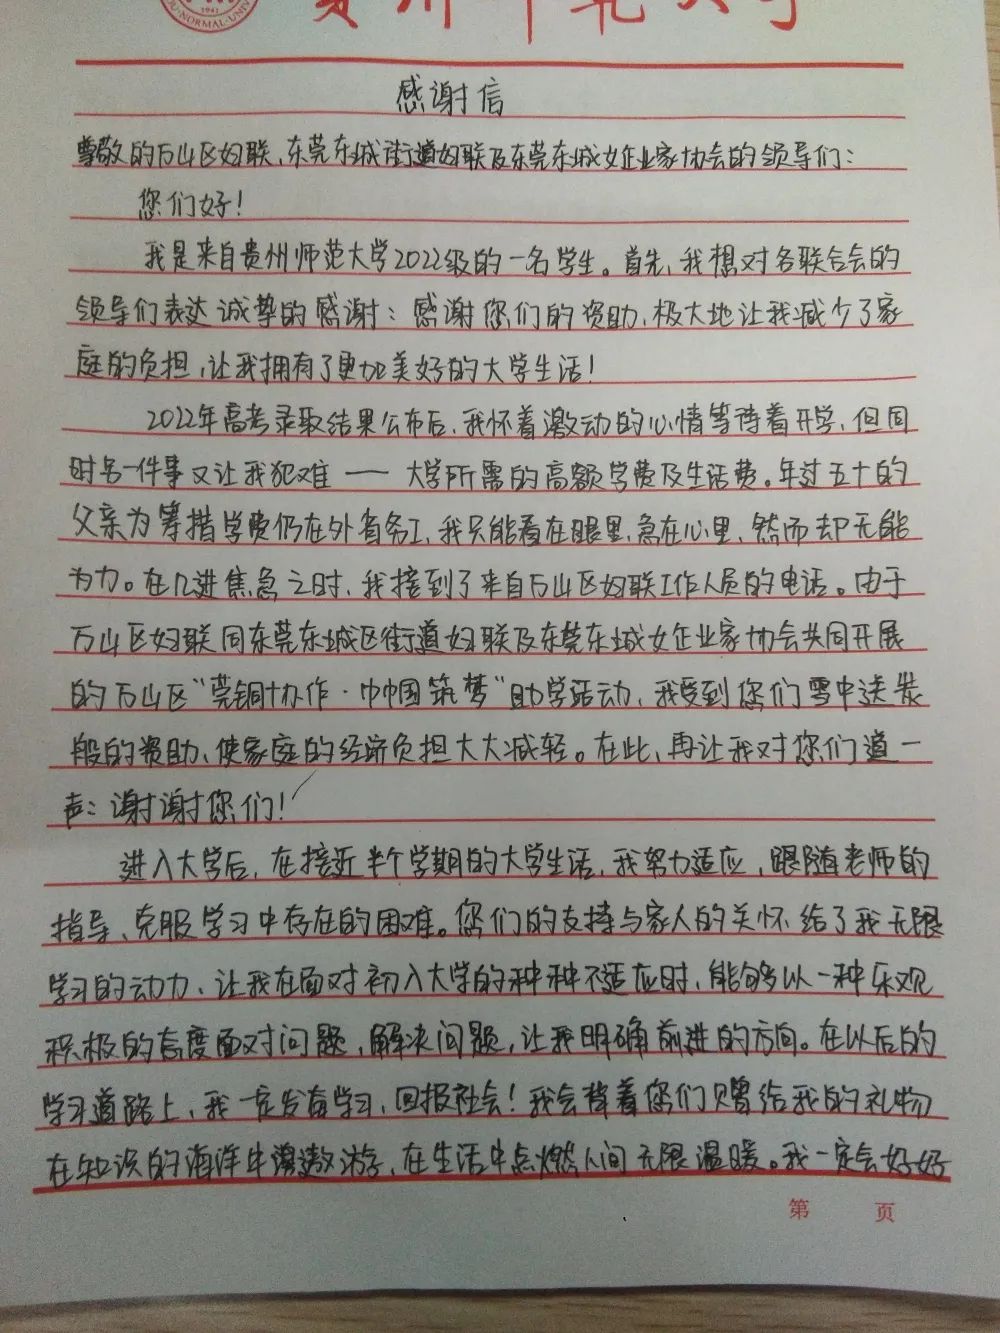 贵州师范大学
1941
OU·NORMAL·UNIV
感谢信
尊敬的万山区妇联、东莞东城街道妇联及东莞东城女企业家协会的领导们：
您们好！
我是来自贵州师范大学2022级的一名学生。首先，我想对各联合会的
领导们表达诚挚的感谢：感谢您们的资助、极大地让我减少了家
庭的负担，让我拥有了更加美好的大学生活！
2022年高考录取结果公布后，我怀着激动的心情等待着开学，但同
时另一件事又让我犯难——大学所需的高额学费及生活费。年过五十的
父亲为筹措学费仍在外省务工，我只能看在眼里，急在心里，然而却无能
为力。在几进焦急之时，我接到了来自万山区妇联工作人员的电话。由于
万山区妇联同东莞东城区街道妇联及东莞东城女企业家协会共同开展
的万山区“莞铜协作·巾帼筑梦”助学活动，我受到您们雪中送炭
般的资助、使家庭的经济负担大大减轻。在此，再让我对您们道一
声：谢谢您们！
进入大学后，在接近半个学期的大学生活，我努力适应，跟随老师的
指导、克服学习中存在的困难。您们的支持与家人的关怀给了我无限
学习的动力、让我在面对初入大学的种种不适应时，能够以一种乐观
积极的态度面对问题，解决问题，让我明确前进的方向。在以后的
学习道路上，我一定发奋学习，回报社会！我会带着您们赠给我的礼物
在知识的海洋中遨游，在生活中点燃人间无限温暖。我一定会好好
第 页